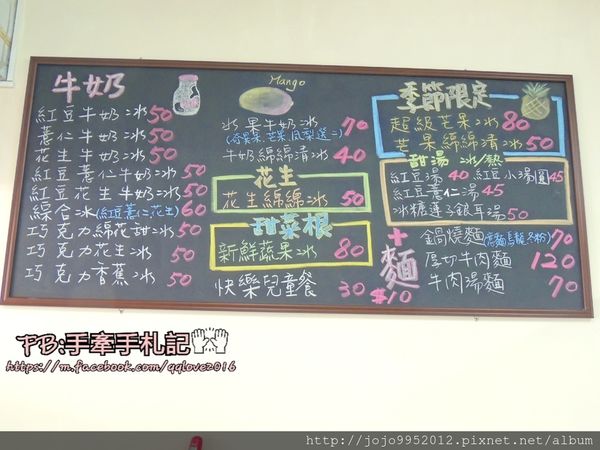 牛奶
紅豆牛奶冰 50
薏仁牛奶冰 50
花生牛奶冰 50
紅豆薏仁牛奶冰 50
紅豆花生牛奶冰 50
綜合冰(紅豆薏仁花生) 60
巧克力綿花甜冰 50
巧克力花生冰 50
巧克力香蕉冰 50
Mango
水果牛奶冰 70
牛奶綿綿清冰 40
花生
花生綿綿冰 50
甜菜根
新鮮蔬果冰 80
快樂兒童餐 30
季節限定
超級芒果冰 80
芒果綿綿清冰 50
甜湯 冰/熱
紅豆湯 40 紅豆小湯圓 45
紅豆薏仁湯 45
冰糖蓮子銀耳湯 50
+麵 $10
鍋燒麵 70
厚切牛肉麵 120
牛肉湯麵 70
FB:手牽手札記
https://m.facebook.com/qqlove2016
http://jojo9952012.pixnet.net/album